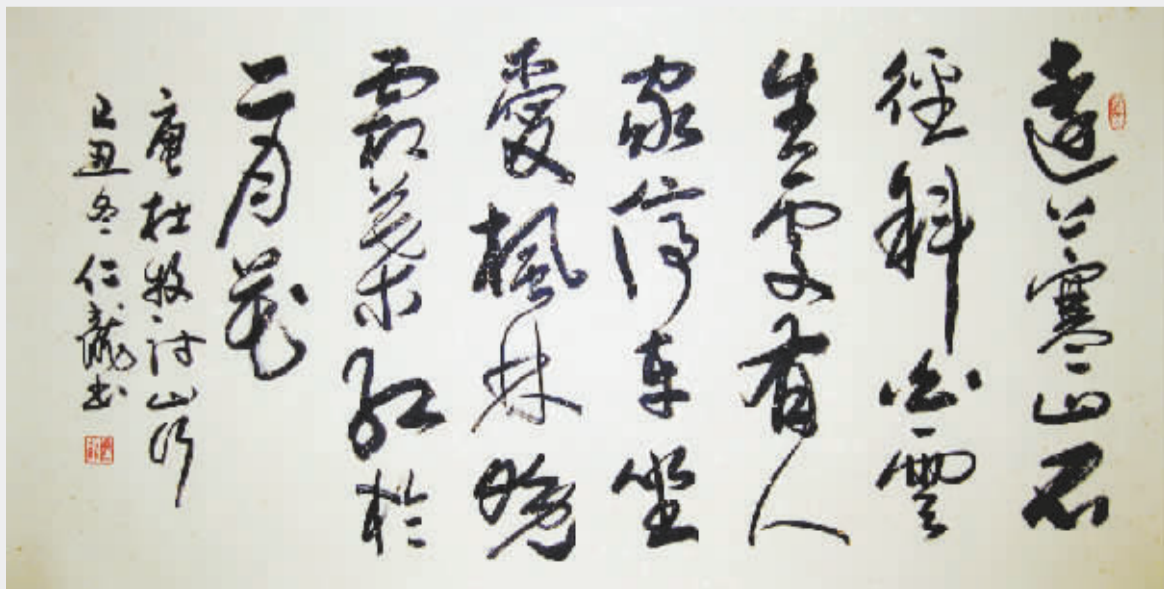 遠上寒山石
徑斜白雲
生處有人
家停車坐
愛楓林晚
霜葉紅於
二月花
唐杜牧詩山行
己丑冬仁龍書